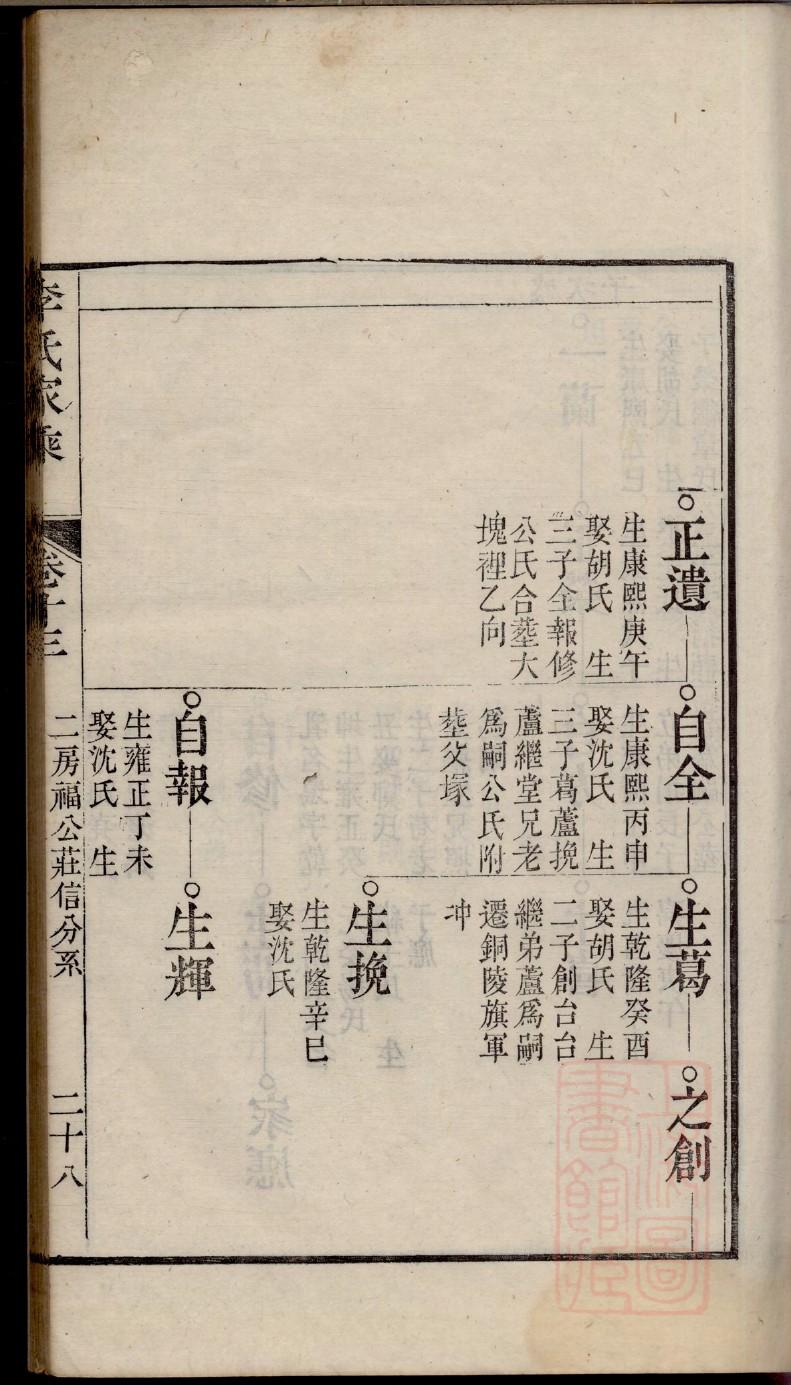 正遺
生康熙庚午
娶胡氏 生
三子全報修
公氏合塟大
塊裡乙向
自全
生康熙丙申
娶沈氏 生
三子葛蘆挽
蘆繼堂兄老
爲嗣公氏附
塟父塚
生葛
生乾隆癸酉
娶胡氏 生
二子創台台
繼弟蘆爲嗣
遷銅陵旗軍
冲
之創
生挽
生乾隆辛巳
娶沈氏
自報
生雍正丁未
娶沈氏 生
生輝
李氏家乘 卷十三 二房福公莊信分系 二十八